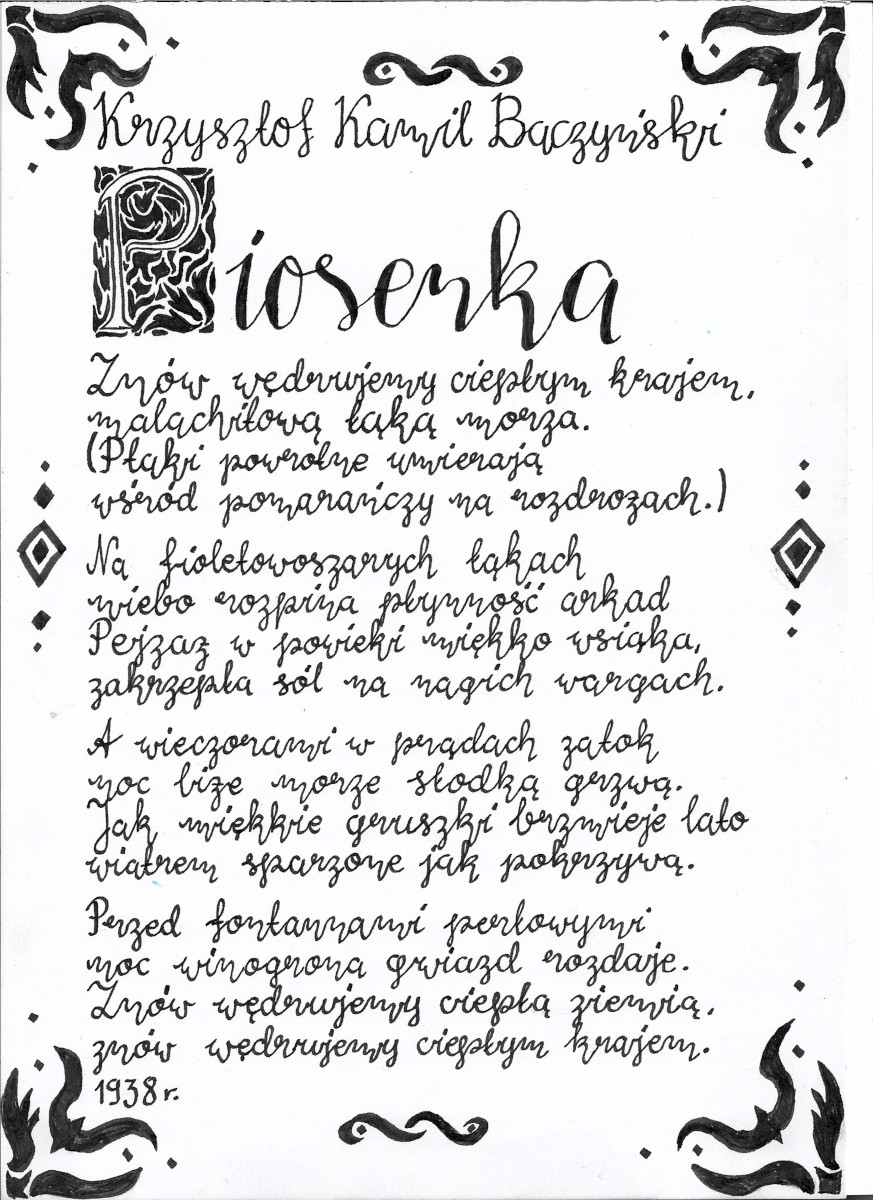 Krzysztof Kamil Baczyński
Piosenka
Znów wędrujemy ciepłym krajem,
malachitową łąką morza.
(Ptaki powrotne umierają
wśród pomarańczy na rozdrożach.)
Na fioletowoszarych łąkach
niebo rozpina płynność arkad
Pejzaż w powieki miękko wsiąka,
zakrzepła sól na nagich wargach.
A wieczorami w prądach zatok
noc liże morze słodką grzwą.
Jak miękkie gruszki brzmieje lato
wiatrem sparzone jak pokrzywą.
Przed fontannami perłowymi
noc winogrona gwiazd rozdaje.
Znów wędrujemy ciepłą ziemią,
znów wędrujemy ciepłym krajem.
1938 r.